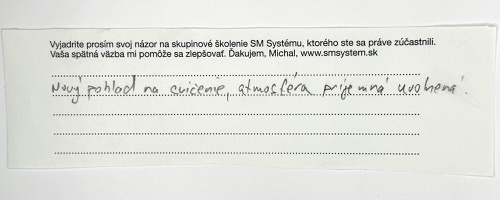 Vyjadrite prosím svoj názor na skupinové školenie SM Systému, ktorého ste sa práve zúčastnili.
Vaša spätná väzba mi pomôže sa zlepšovať. Ďakujem, Michal, www.smsystem.sk
Nový pohľad na cvičenie, atmosféra príjemná uvoľnená.